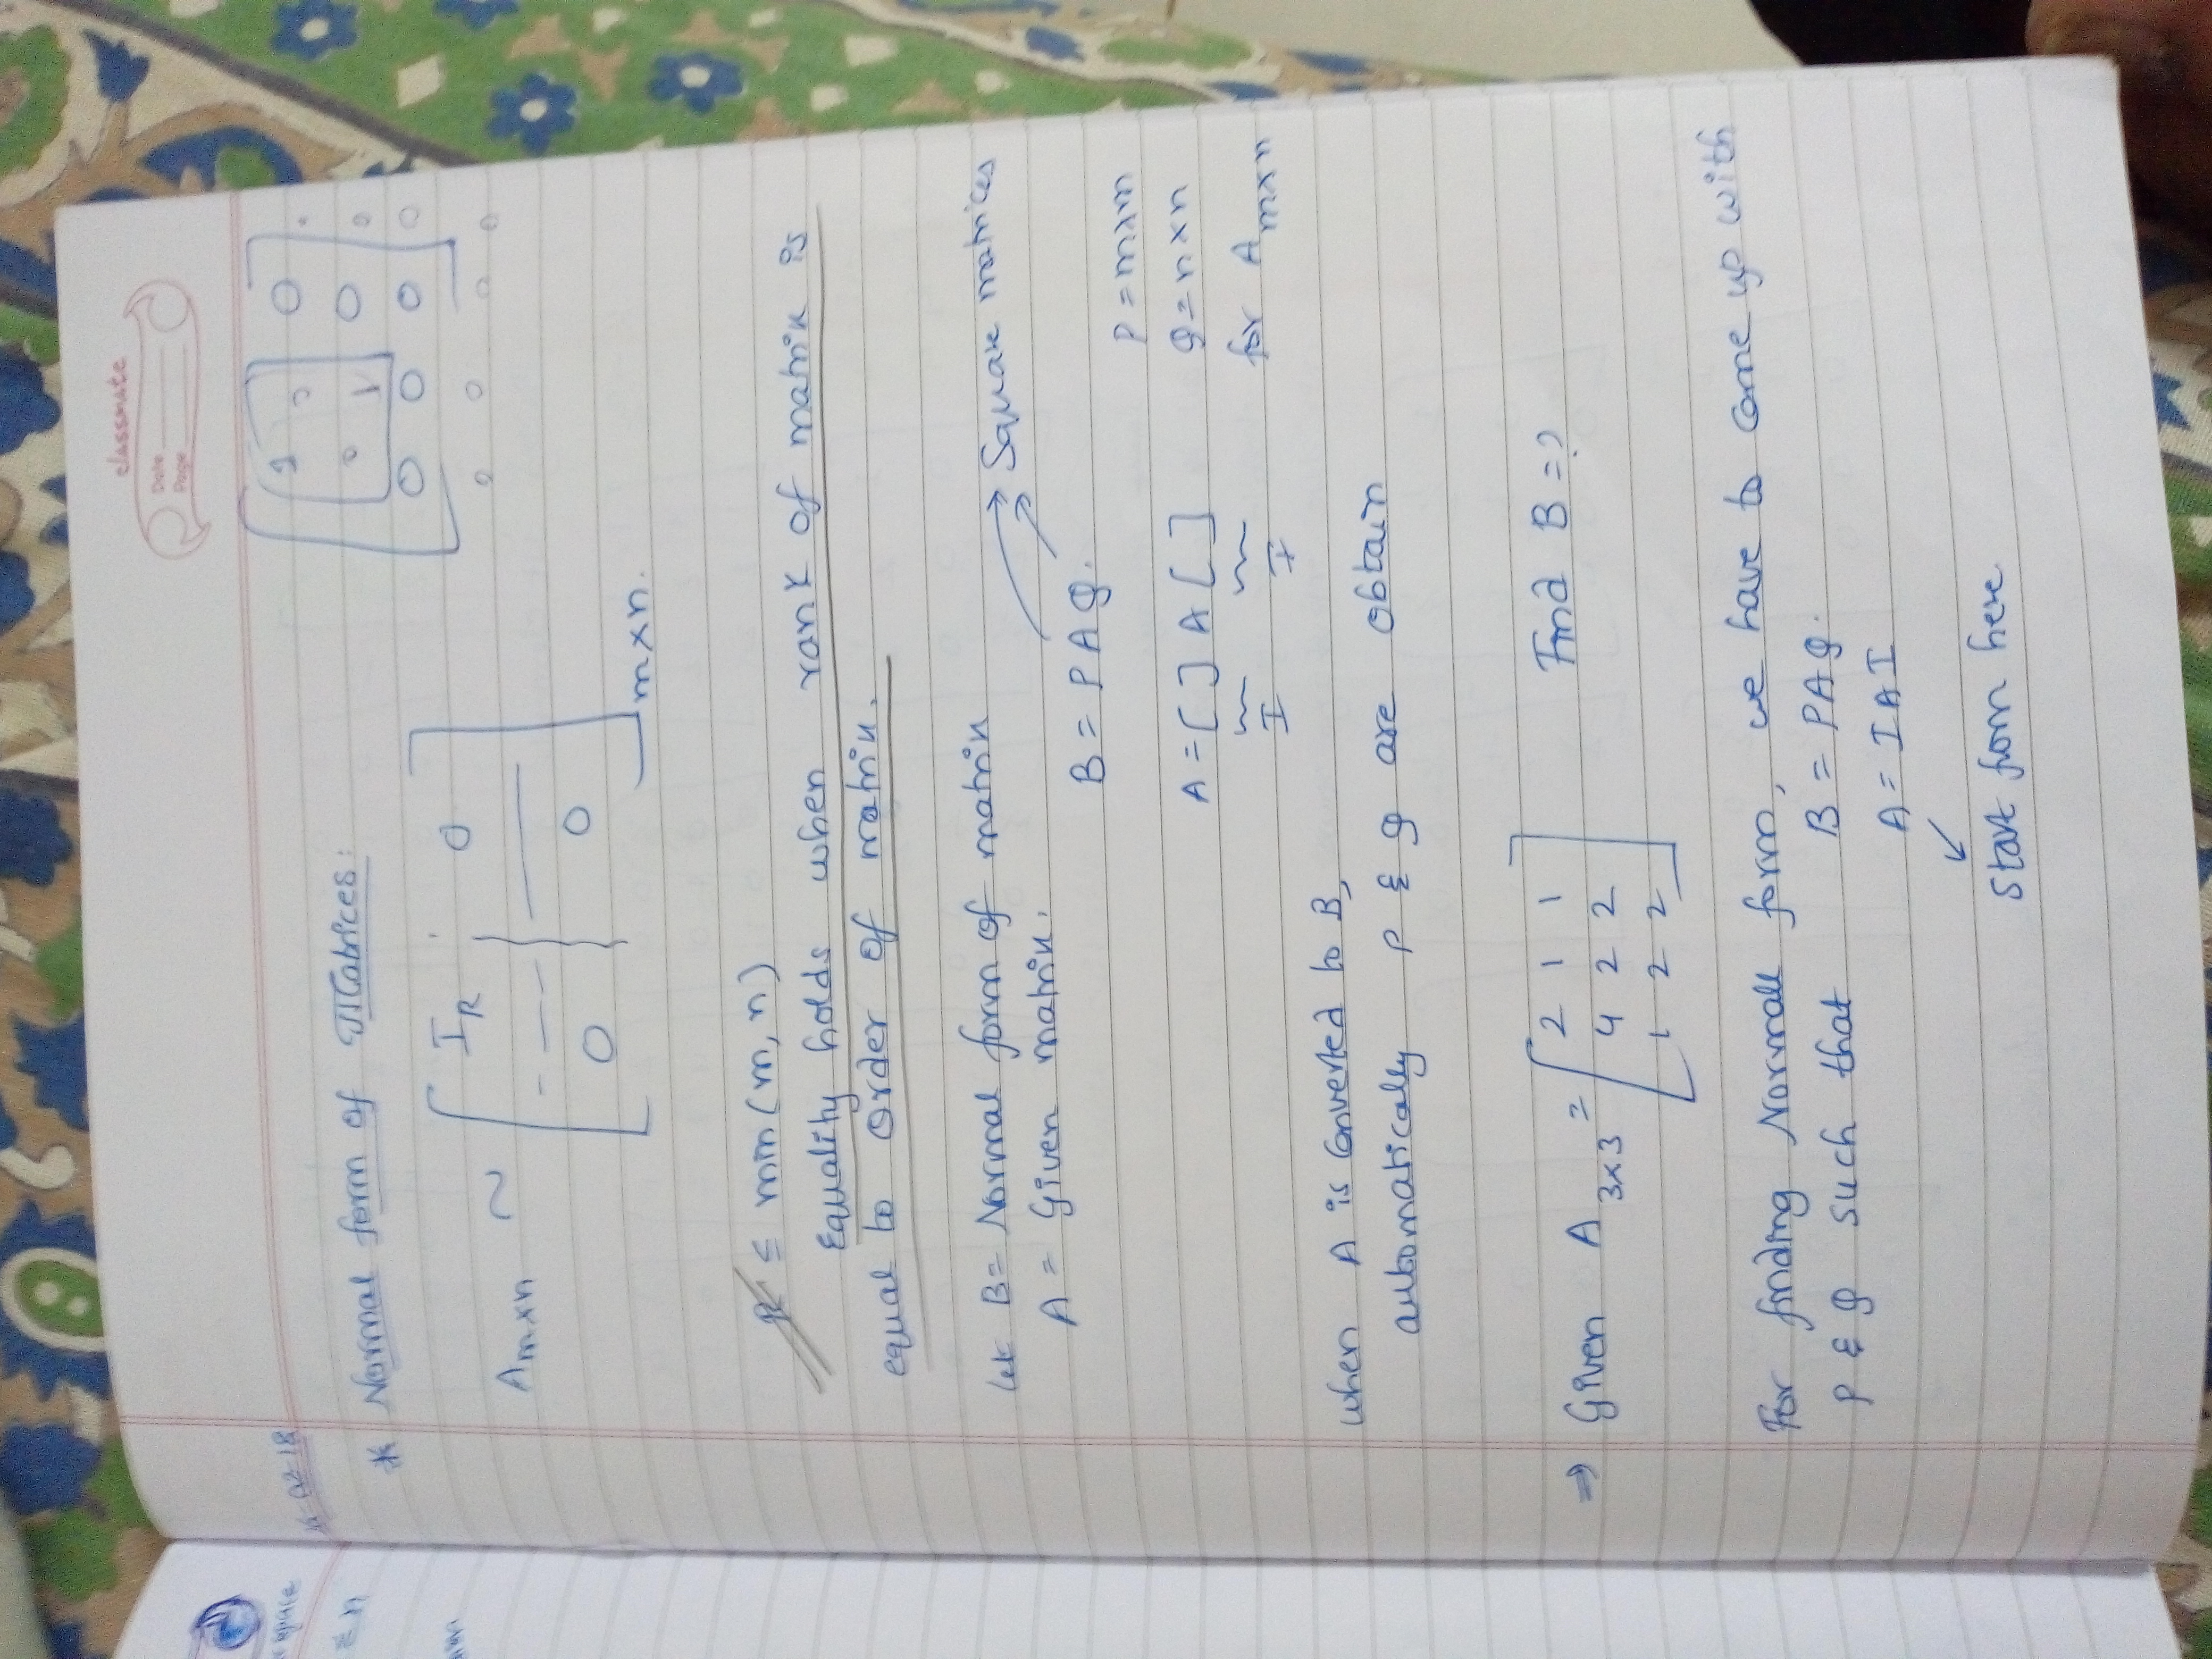 classmate
Date
Page
* Normal form of Matrices:
A m×n ~ [ I R 0
0 0 ] m×n.
R ≤ min (m, n)
Equality holds when rank of matrix is
equal to order of matrix.
let B = Normal form of matrix
A = Given matrix.
B = P A Q. → Square matrices
P = m×m
A = [ ] A [ ] Q = n×n
I I for A m×n
when A is converted to B,
automatically P & Q are obtain
⇒ Given A 3×3 = [ 2 1 1
4 2 2
1 2 2 ] Find B = ?
For finding Normal form, we have to come up with
P & Q such that B = PAQ.
A = IAI
Start from here
space
≤ n